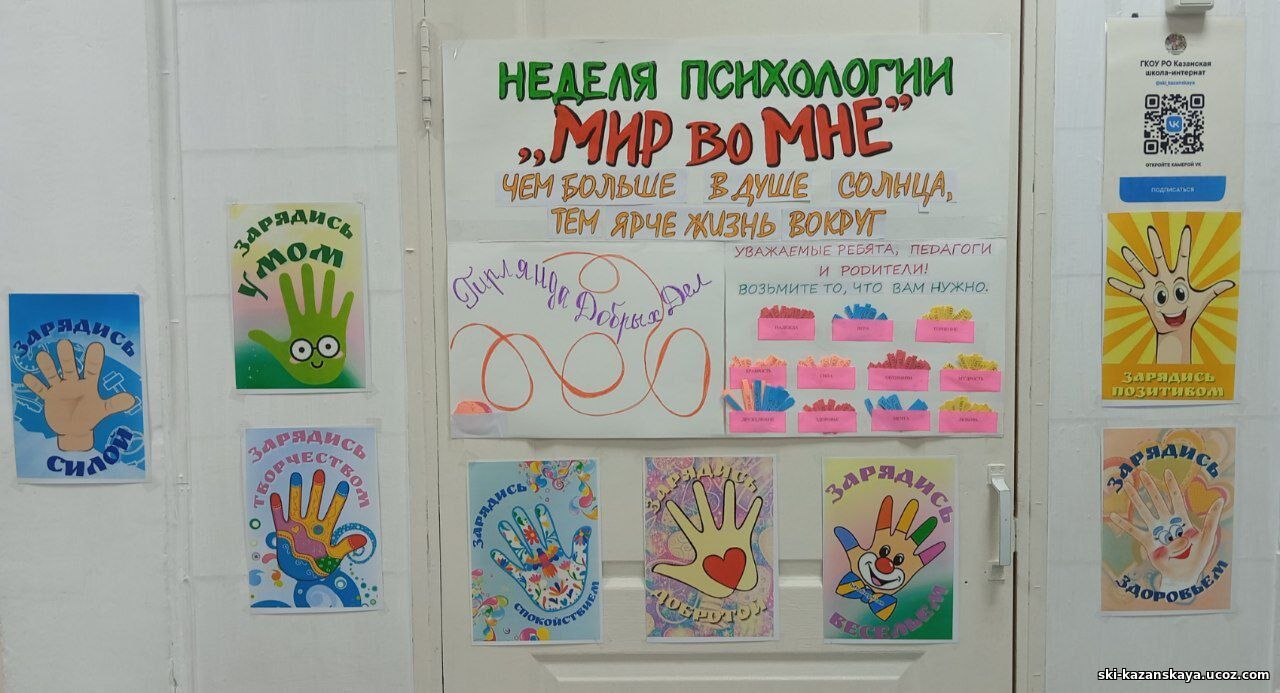 НЕДЕЛЯ ПСИХОЛОГИИ
„МИР ВО МНЕ”
ЧЕМ БОЛЬШЕ В ДУШЕ СОЛНЦА,
ТЕМ ЯРЧЕ ЖИЗНЬ ВОКРУГ
Гирлянда Добрых Дел
УВАЖАЕМЫЕ РЕБЯТА, ПЕДАГОГИ
И РОДИТЕЛИ!
ВОЗЬМИТЕ ТО, ЧТО ВАМ НУЖНО.
НАДЕЖДА
ВЕРА
ТЕРПЕНИЕ
ХРАБРОСТЬ
СИЛА
МУДРОСТЬ
ЗДОРОВЬЕ
МЕЧТА
ЛЮБОВЬ
ЗАРЯДИСЬ
СИЛОЙ
ЗАРЯДИСЬ
УМОМ
ЗАРЯДИСЬ
ТВОРЧЕСТВОМ
ЗАРЯДИСЬ
СПОКОЙСТВИЕМ
ЗАРЯДИСЬ
ДОБРОТОЙ
ЗАРЯДИСЬ
ВЕСЕЛЬЕМ
ГКОУ РО Казанская
школа-интернат
@ski_kazanskaya
ОТКРОЙТЕ КАМЕРОЙ VK
ПОДПИСАТЬСЯ
ЗАРЯДИСЬ
ПОЗИТИВОМ
ЗАРЯДИСЬ
ЗДОРОВЬЕМ
ski-kazanskaya.ucoz.com